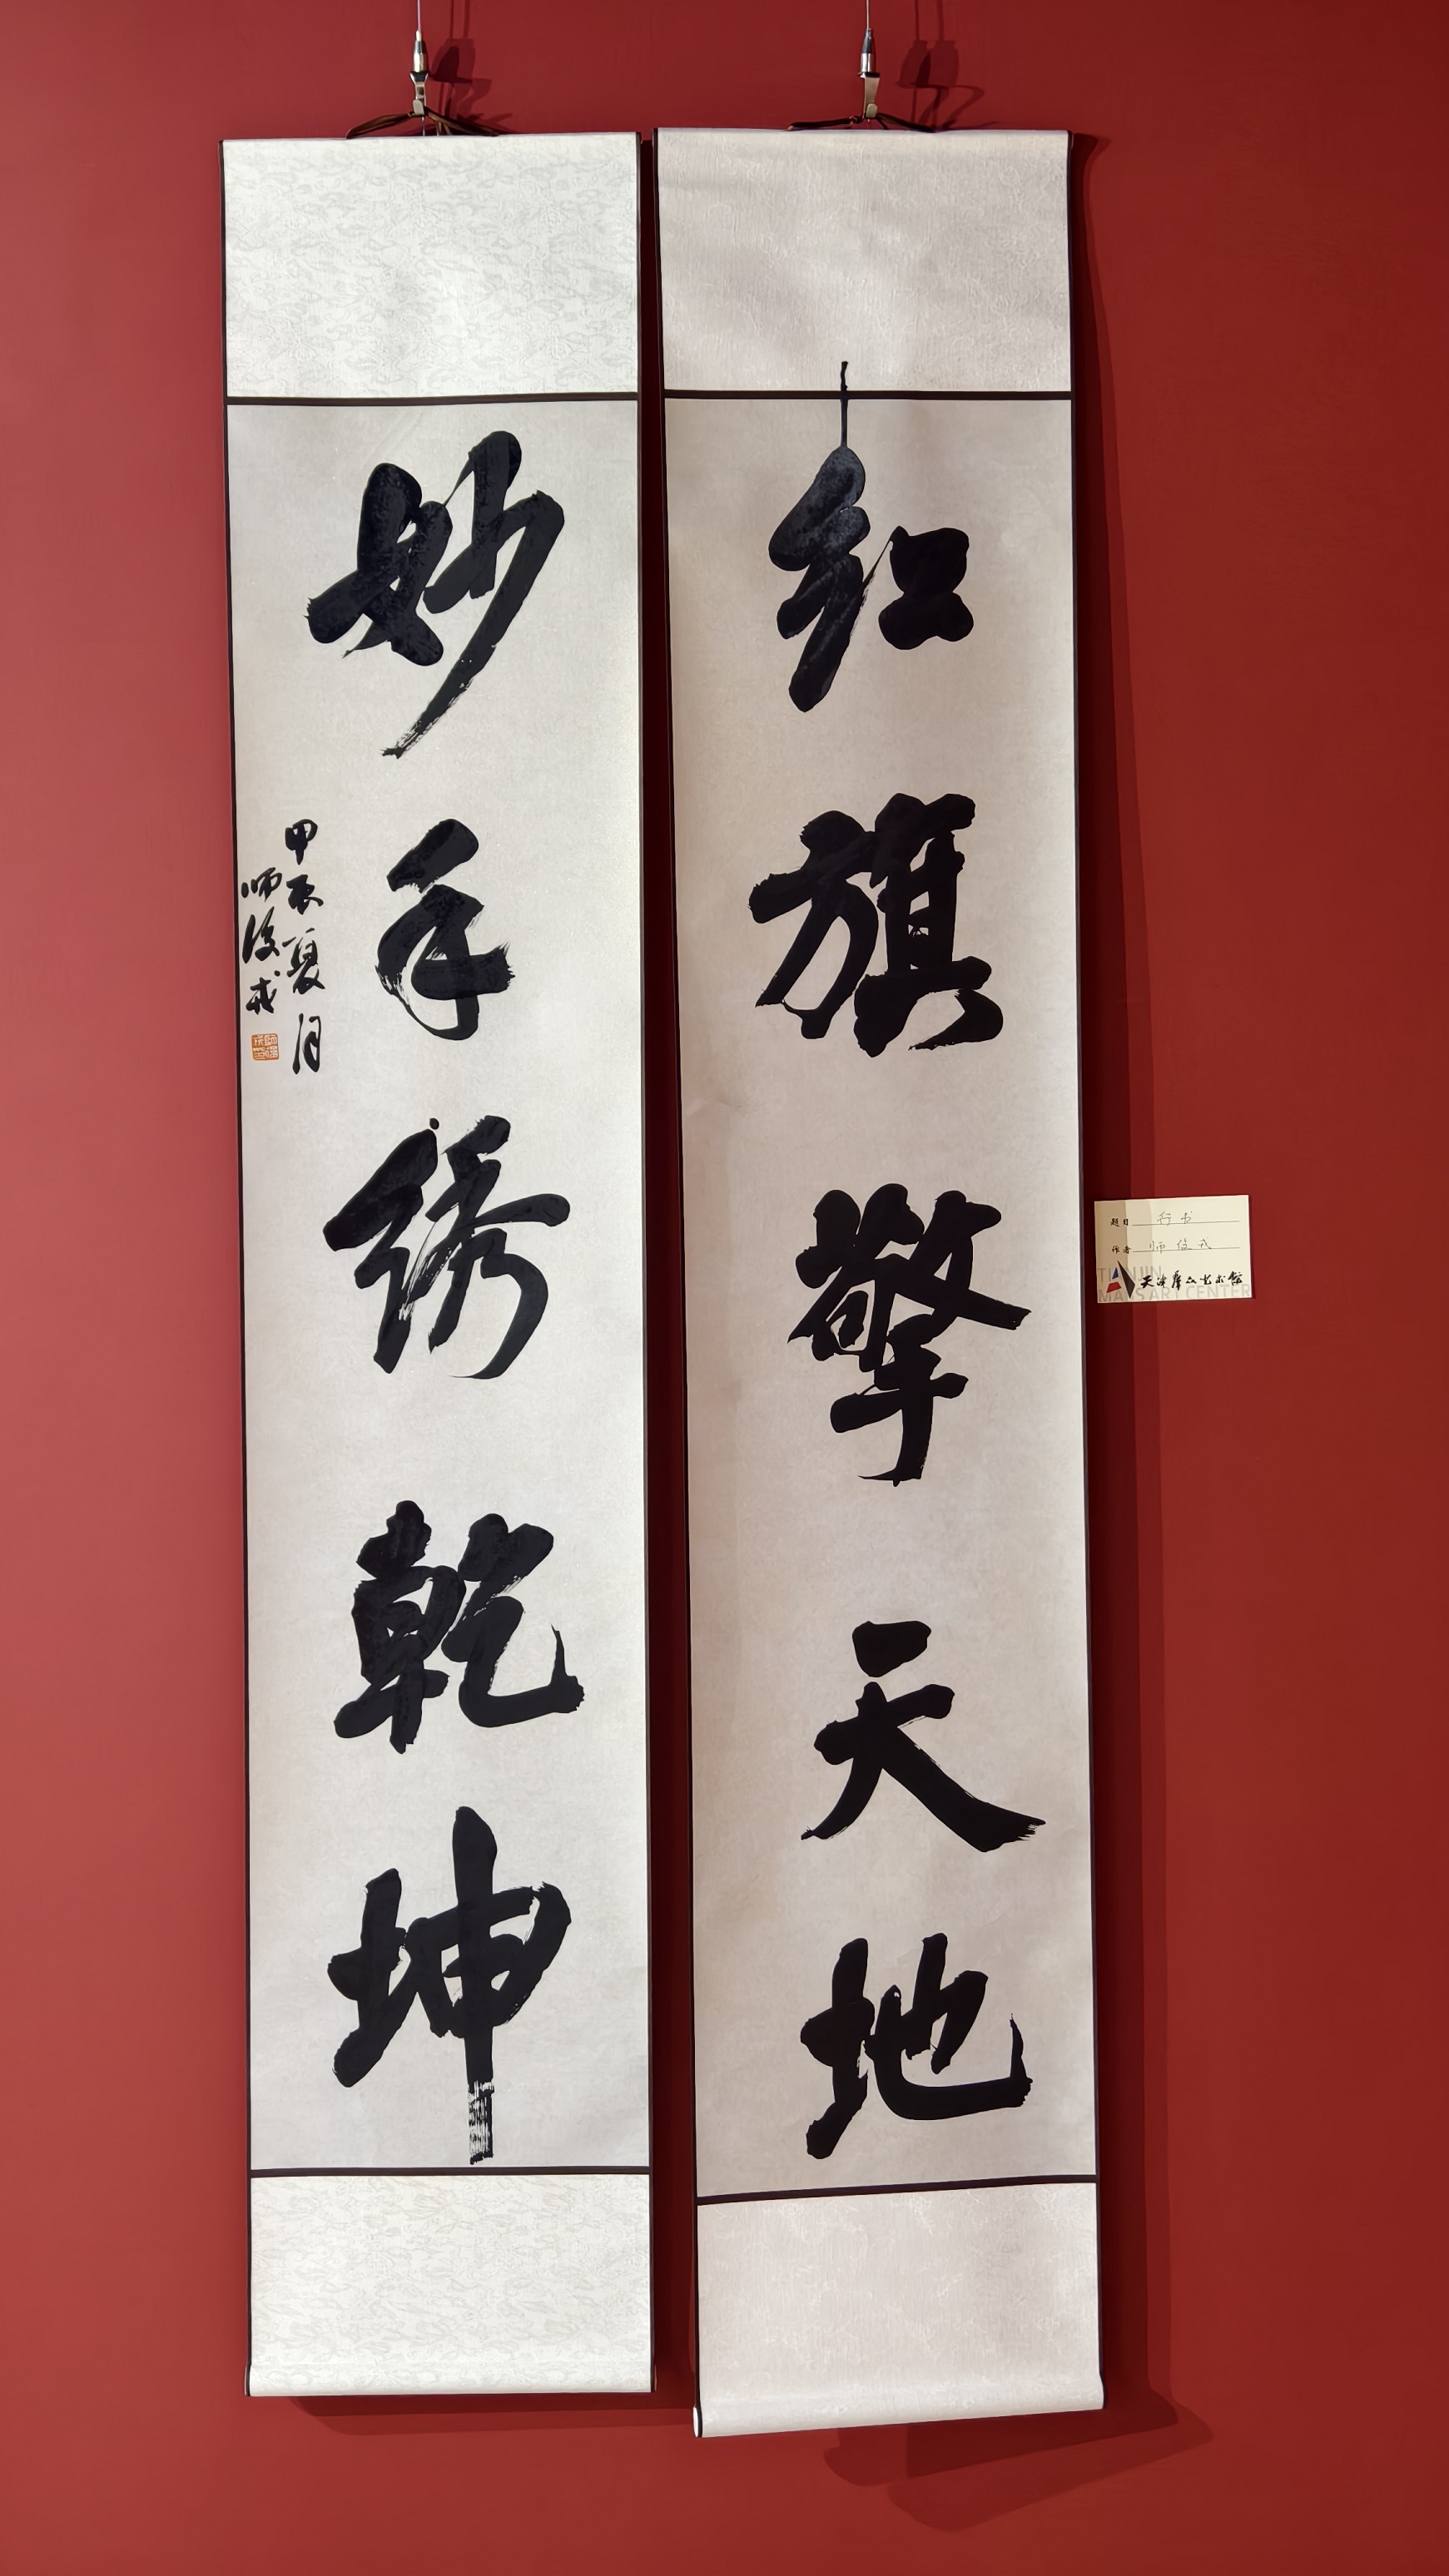 红旗擎天地
妙手绣乾坤
甲辰夏月
师俊戎
题目 行书
作者 师俊戎
TIANJIN
MASS ART CENTER
天津群众艺术馆